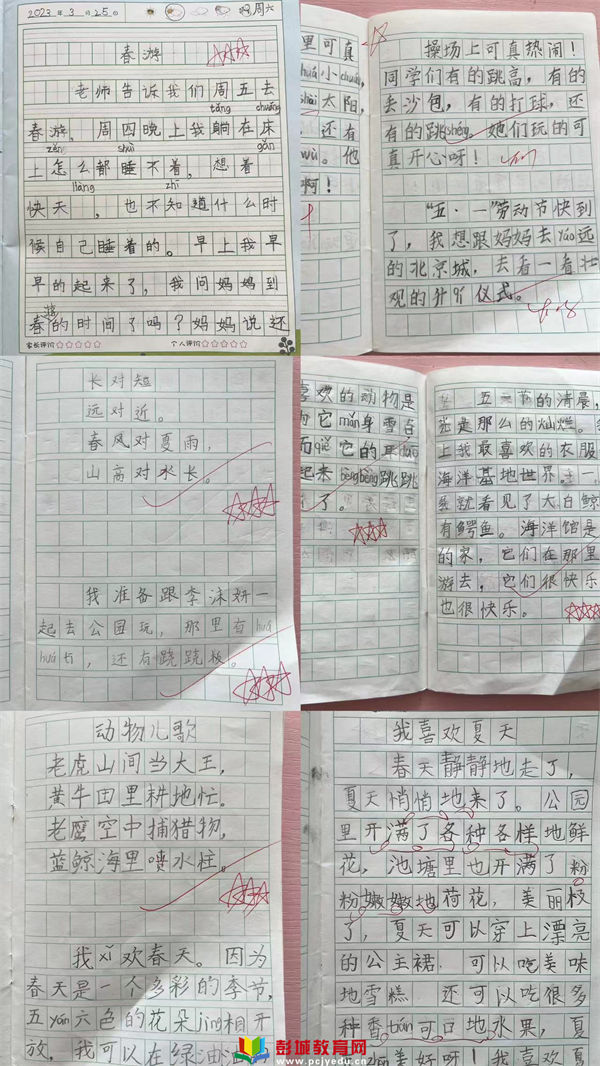 2023年3月25日 周六
春游
老师告诉我们周五去
tǎng chuáng
春游，周四晚上我躺在床
zěn shuì gān
上怎么都睡不着，想着
liàng zhī
快天，也不知道什么时
候自己睡着的。早上我早
早的起来了，我问妈妈到
春游的时间了吗？妈妈说还
家长评价☆☆☆☆☆ 个人评价☆☆☆☆☆
里可真
huá小chuán,
shài太阳，
，还有
wǔ。他
啊！
操场上可真热闹！
同学们有的跳高，有的
丢沙包，有的打球，还
有的跳shéng。她们玩的可
真开心呀！
“五·一”劳动节快到
了，我想跟妈妈去yáo远
的北京城，去看一看壮
观的升旗仪式。
长对短
远对近。
春风对夏雨，
山高对水长。
我准备跟李沫妍一
起去公园玩，那里有huá
，还有跷跷板。
喜欢的动物是
为它mǎn身雪白
而qiě它的耳
起来bèngbèng跳跳
了。
五一节的清晨，
是那么的灿烂。
上我最喜欢的衣服
海洋基地世界。一
就看见了大白鲸
有鳄鱼。海洋馆是
的家，它们在那里
游去，它们很快乐
也很快乐。
动物儿歌
老虎山间当大王，
黄牛田里耕地忙。
老鹰空中捕猎物，
蓝鲸海里喷水柱。
我xǐ欢春天。因为
春天是一个多彩的季节，
五yán六色的花朵jìng相开
放，我可以在绿油油
我喜欢夏天
春天静静地走了，
夏天悄悄地来了。公园
里开满了各种各样地鲜
花，池塘里也开满了粉
粉嫩嫩地荷花，美丽极
了，夏天可以穿上漂亮
的公主裙 可以吃美味
地雪糕 还可以吃很多
种香tián可口地水果，夏
美好呀！我喜欢夏
彭城教育网
www.pcjyedu.cn